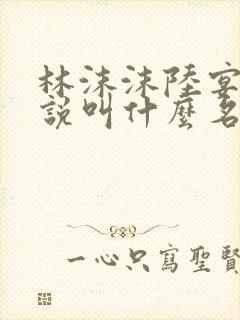 林沫沫陸宴
說叫什麼名
一心只寫聖賢